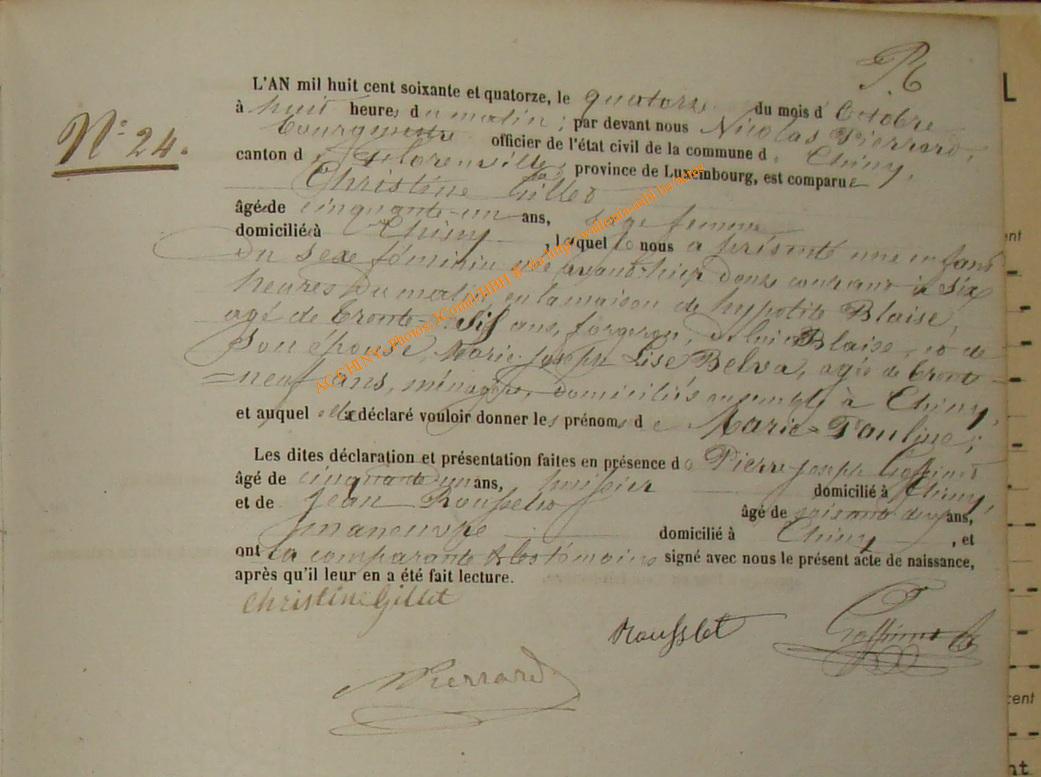 N° 24.
L'AN mil huit cent soixante et quatorze, le quatorze du mois d'Octobre
à huit heures du matin, par devant nous Nicolas Pierrard,
bourgmestre officier de l'état civil de la commune de Chiny,
canton de Florenville, province de Luxembourg, est comparue
Christine Gillet
âgée de cinquante-un ans, sage femme
domiciliée à Chiny, laquelle nous a présenté une enfant
du sexe féminin née avant hier douze courant à six
heures du matin, en la maison de hypolite Blaise,
agé de trente-six ans, forgeron, de lui Blaise, et de
Son épouse, Marie-Joseph Lise Belva, agée de trente
=neuf ans, ménagère, domiciliés ensemble à Chiny,
et auquel elle a déclaré vouloir donner les prénoms de Marie-Pauline;
Les dites déclaration et présentation faites en présence de Pierre Joseph
âgé de cinquante un ans, domicilié à Chiny
et de Jean Rousselet âgé de soixante deux ans,
manœuvre domicilié à Chiny, et
ont la comparante & les témoins signé avec nous le présent acte de naissance,
après qu'il leur en a été fait lecture.
Christine Gillet
Rousslet
NPierrard